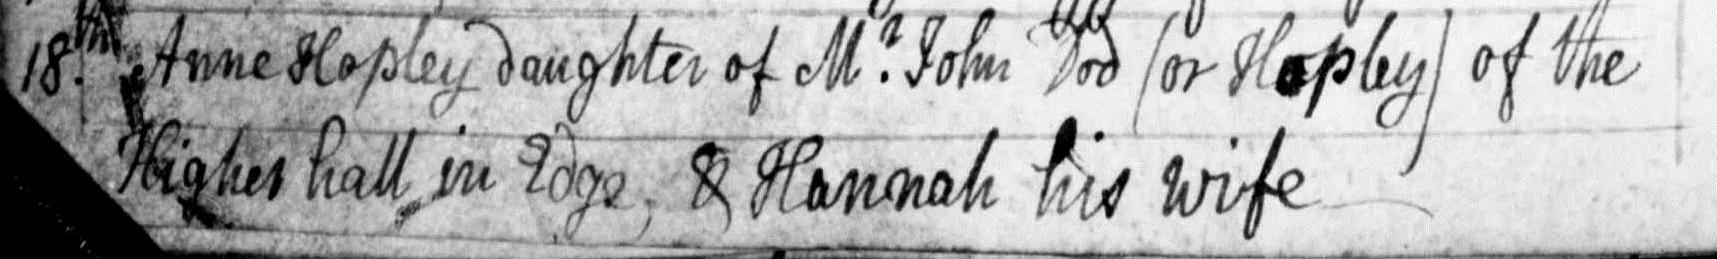 18.th Anne Hopley daughter of Mr. John Dod (or Hopley) of the
Higher hall in Edge, & Hannah his wife